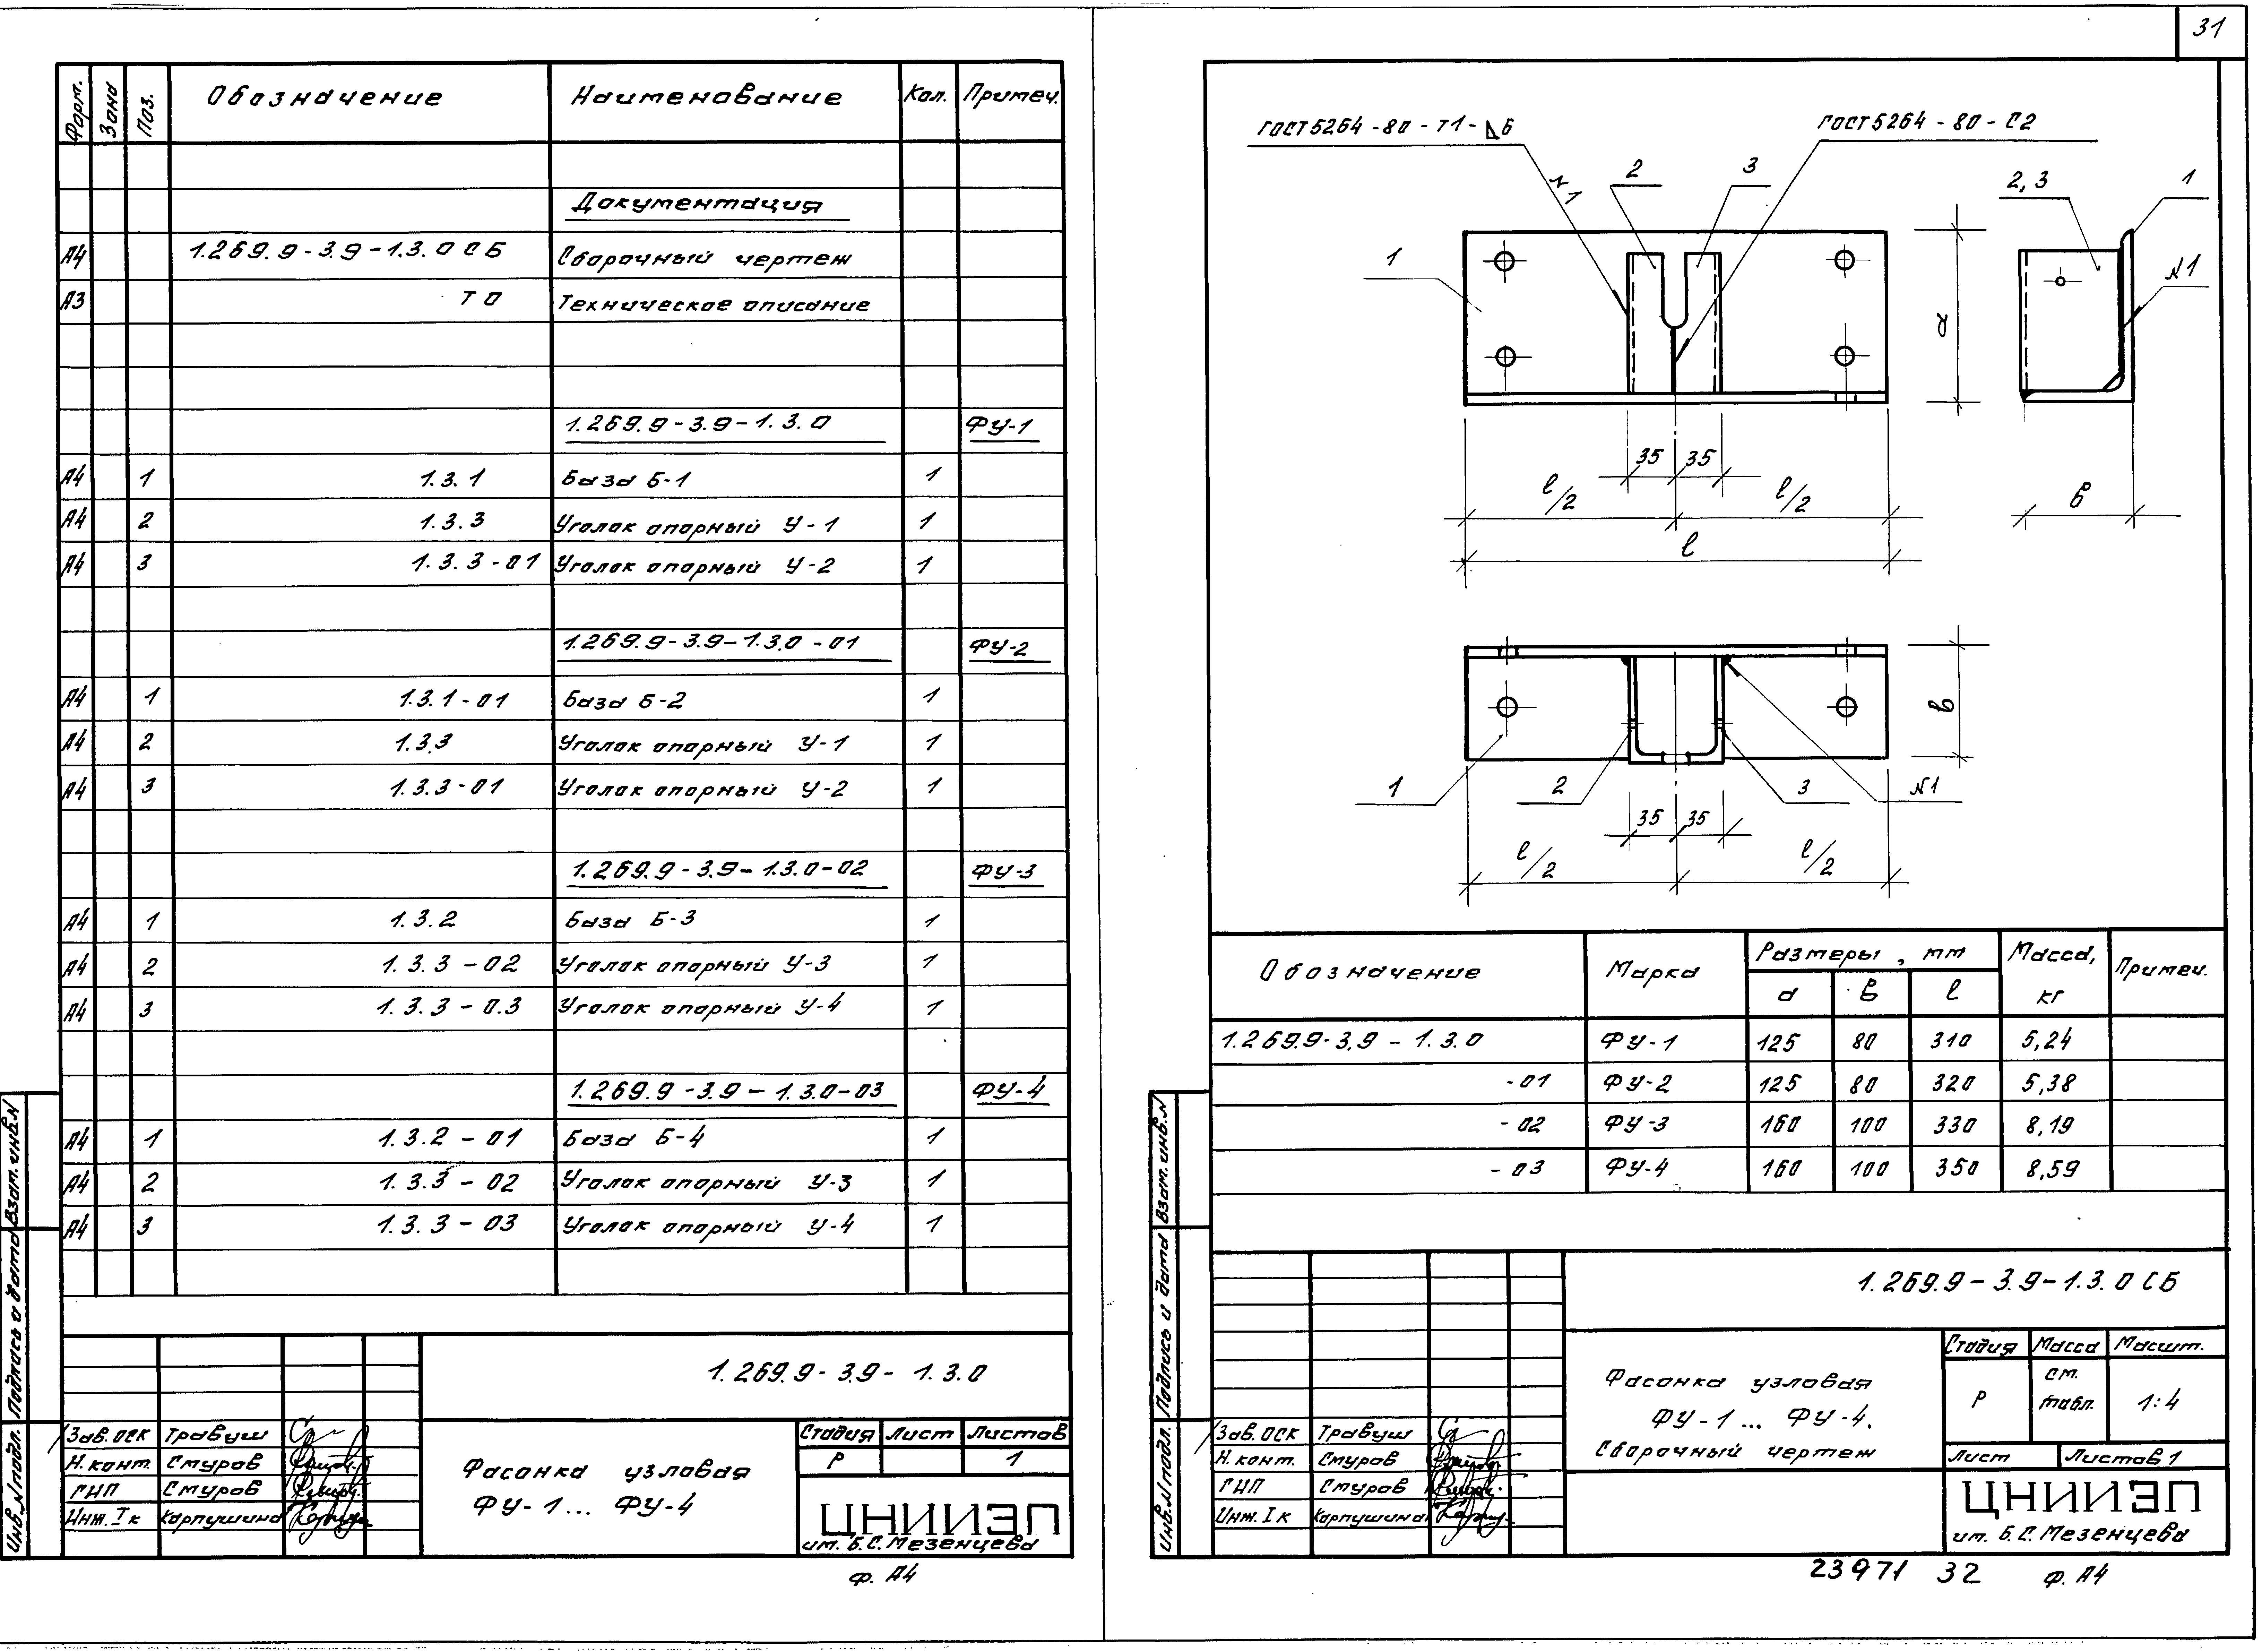 31
Форм. Зона Поз. Обозначение Наименование Кол. Примеч.
Документация
А4 1.269.9-3.9-1.3.0 СБ Сборочный чертеж
А3 ТО Техническое описание
1.269.9-3.9-1.3.0 ФУ-1
А4 1 1.3.1 База Б-1 1
А4 2 1.3.3 Уголок опорный У-1 1
А4 3 1.3.3-01 Уголок опорный У-2 1
1.269.9-3.9-1.3.0-01 ФУ-2
А4 1 1.3.1-01 База Б-2 1
А4 2 1.3.3 Уголок опорный У-1 1
А4 3 1.3.3-01 Уголок опорный У-2 1
1.269.9-3.9-1.3.0-02 ФУ-3
А4 1 1.3.2 База Б-3 1
А4 2 1.3.3-02 Уголок опорный У-3 1
А4 3 1.3.3-0.3 Уголок опорный У-4 1
1.269.9-3.9-1.3.0-03 ФУ-4
А4 1 1.3.2-01 База Б-4 1
А4 2 1.3.3-02 Уголок опорный У-3 1
А4 3 1.3.3-03 Уголок опорный У-4 1
Взам. инв. N
Подпись и дата
Инв. N подл.
1.269.9-3.9-1.3.0
Зав. ОСК Травуш
Н. конт. Смуров
ГИП Смуров
Инж. I к Карпушина
Фасонка узловая
ФУ-1... ФУ-4
Стадия Лист Листов
Р 1
ЦНИИЭП
им. Б.С. Мезенцева
Ф. А4
ГОСТ 5264-80-Т1-⊿6
ГОСТ 5264-80-С2
N1
2 3
2,3 1
1
N1
а
35 35
l/2 l/2
в
l
в
1 2 3 N1
35 35
l/2 l/2
Обозначение Марка Размеры, мм Масса, кг Примеч.
а в l
1.269.9-3.9-1.3.0 ФУ-1 125 80 310 5,24
-01 ФУ-2 125 80 320 5,38
-02 ФУ-3 160 100 330 8,19
-03 ФУ-4 160 100 350 8,59
Взам. инв. N
Подпись и дата
Инв. N подл.
1.269.9-3.9-1.3.0 СБ
Зав. ОСК Травуш
Н. конт. Смуров
ГИП Смуров
Инж. I к Карпушина
Фасонка узловая
ФУ-1... ФУ-4.
Сборочный чертеж
Стадия Масса Масшт.
Р см. табл. 1:4
Лист Листов 1
ЦНИИЭП
им. Б.С. Мезенцева
23971 32 Ф. А4